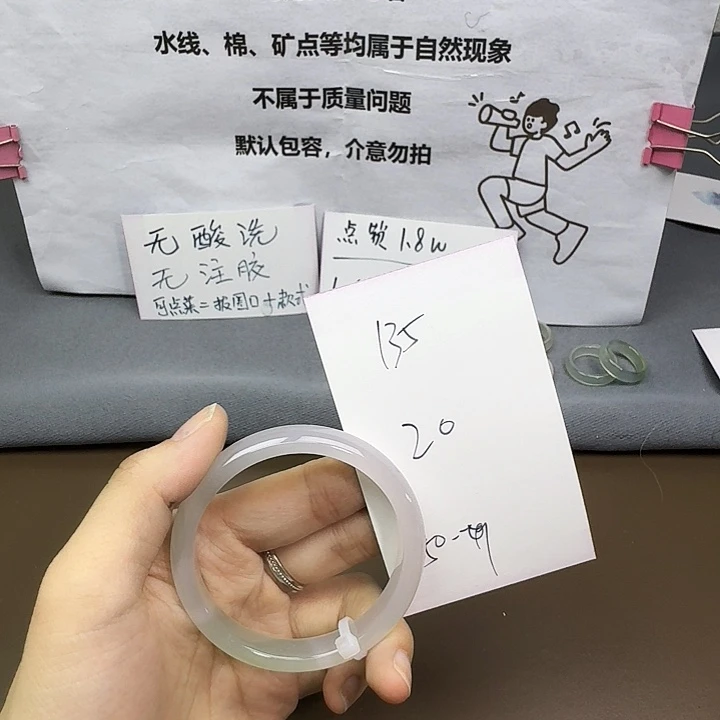 水线、棉、矿点等均属于自然现象
不属于质量问题
默认包容，介意勿拍
无酸洗
无注胶
可点菜=报圈口+款式
点锁 1.8w
135
20